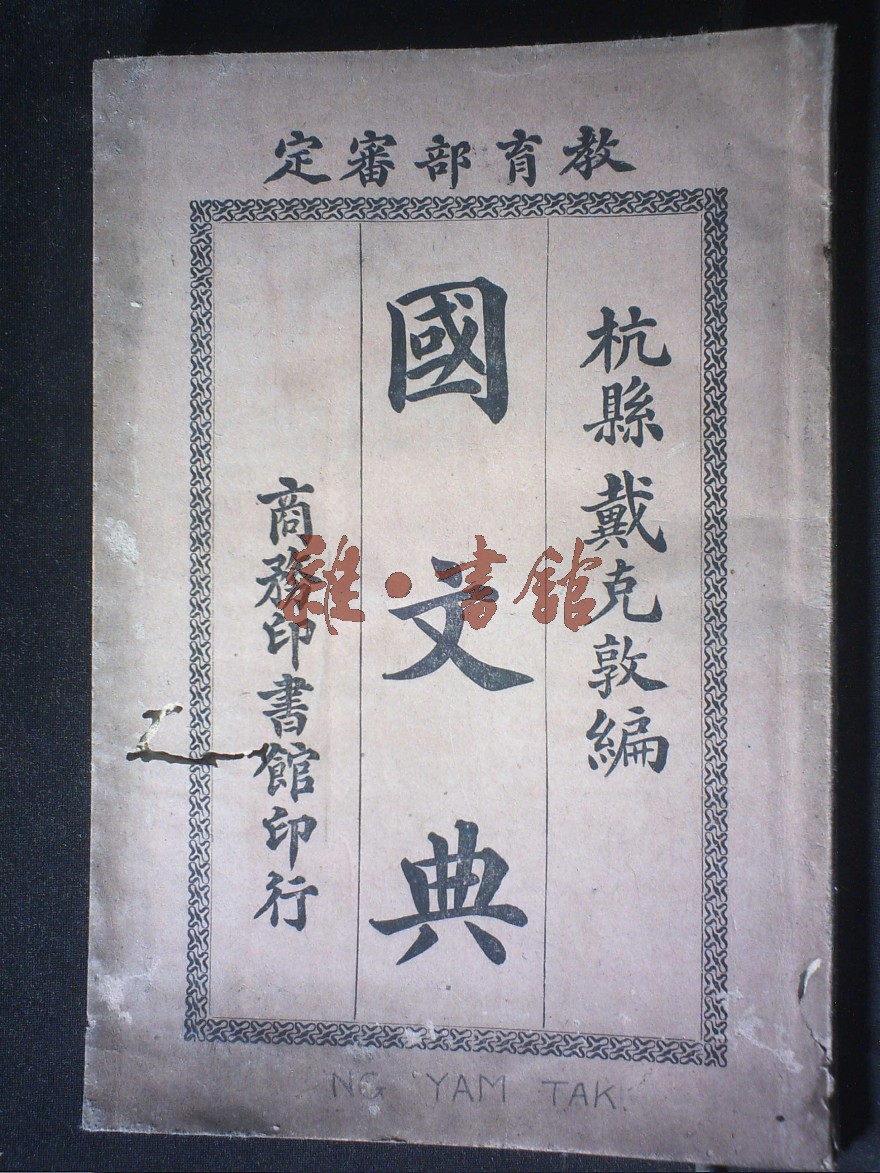 教育部審定
杭縣 戴克敦編
國文典
商務印書館印行
雜·書館
NG YAM TAK